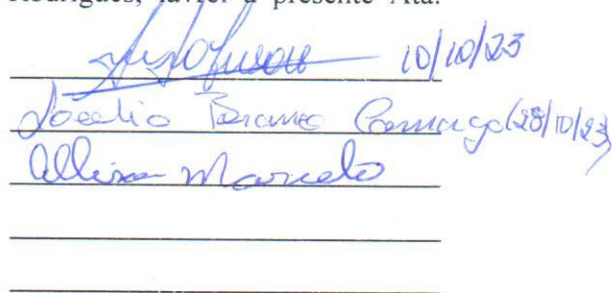 Rodrigues, lavrei a presente Ata.
10/10/23
Joedio Bramo Camargo (28/10/23)
Allison Marcelo